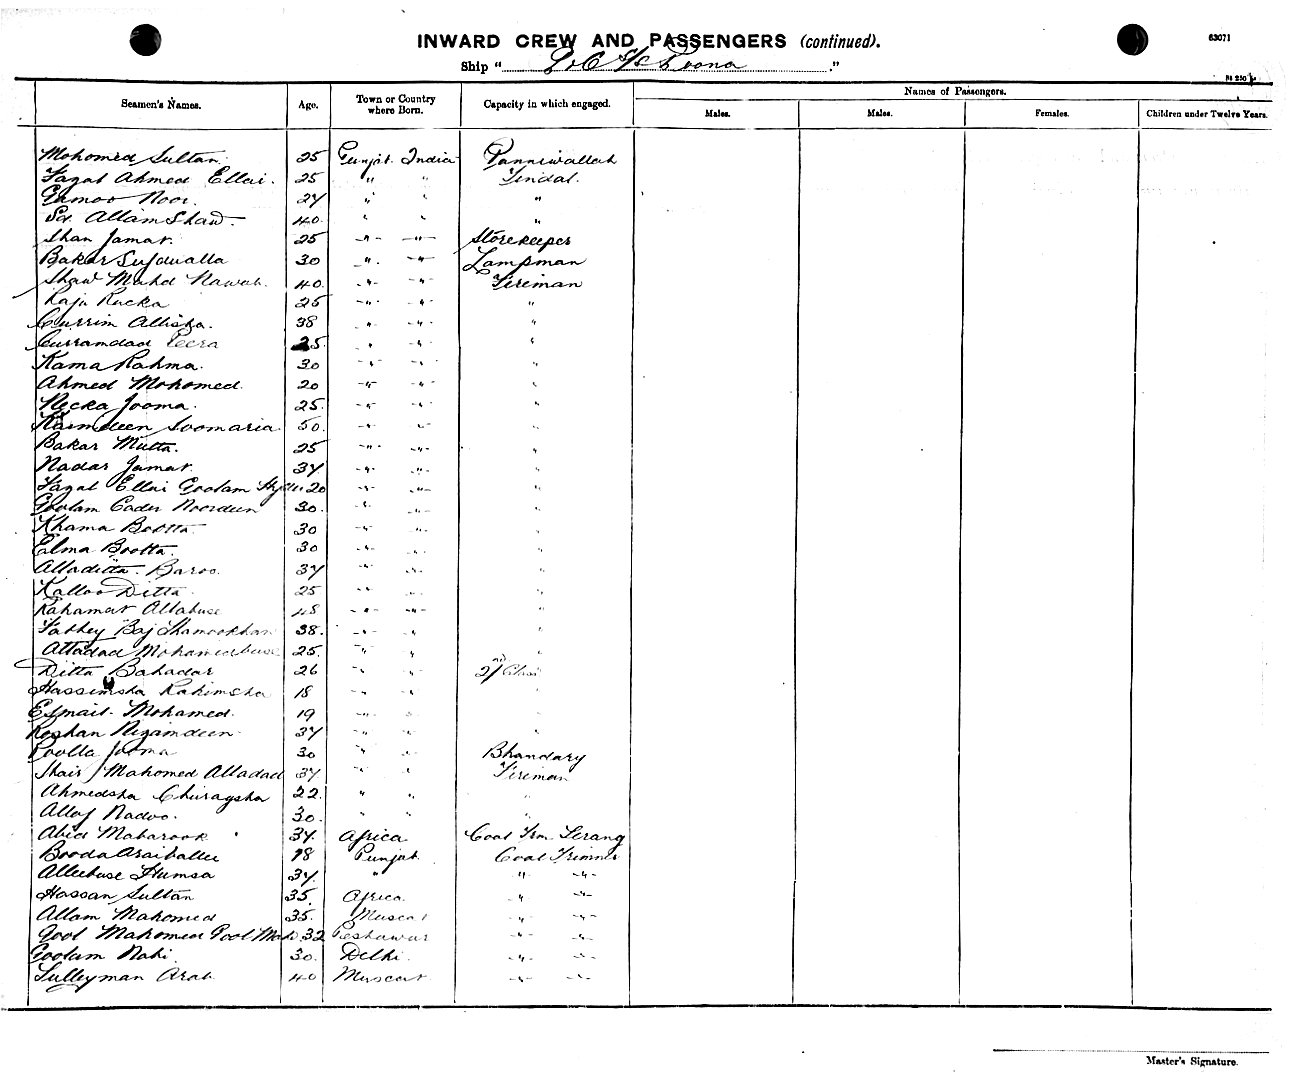 INWARD CREW AND PASSENGERS (continued). 63071
Ship " Poona ."
Names of Passengers.
Seamen's Names. Age. Town or Country where Born. Capacity in which engaged. Males. Males. Females. Children under Twelve Years.
Mohomed Sultan. 25 Punjab India Panniwallah
Fazal Ahmed Ellai. 25 " " Tindal.
Gamoo Noor. 24 " " "
Allam Shaw. 40. " " "
Shan Jamat. 25 -"- -"- Storekeeper
Bakar 30 ". -"- Lampman
Shaw Mahd Nawab. 40. -"- -"- Fireman
Raja Rucka 25 -"- -"- "
Currim Allisha. 38 -"- -"- "
Curramdad Peera 25. " -"- "
Kama Rahma. 30 -"- -"- "
Ahmed Mohomed. 20 -"- -"- "
Necka Jooma. 25. -"- -"- "
Karmdeen Soomaria 50. -"- -"- "
Bakar Mutta. 25 -"- -"- "
Nadar Jamat. 34 -"- -"- "
Fazal Ellai Goolam 20 -"- -"- "
Goolam Cader Noordeen 30. -"- -"- "
Khama Bootta 30 -"- -"- "
Elma Bootta. 30 -"- -"- "
Alladitta. Baroo. 34 -"- -"- "
Kalloo Ditta. 25 -"- -"- "
Rahamat Allabuse 48 -"- -"- "
Fathey Baj Shamookhan 38. -"- " "
Alladad Mohamedbuse 25. " " "
Ditta Bahadar 26 " " 2nd Class
Hassimsha Rahimsha 18 " " "
Esmail. Mohamed. 19 -"- " "
Roshan Nizamdeen. 34 " " "
Poolla Jooma 30 " " Bhandary
Shair Mahomed Alladad 34 " " Fireman
Ahmedsha Churagsha 22. " " "
Allaf Nadoo. 30. " " "
Abid Mabarook 34. Africa Coal Trm Serang
Booda 18 Punjab. Coal Trimmer
Alleebuse Humsa 34. " "- -"-
Hassan Sultan 35. Africa. -"- -"-
Allam Mahomed 35. Muscat -"- -"-
Gool Mahomed Gool Mah 32 Peshawur -"- -"-
Goolam Nabi. 30. Delhi. -"- -"-
Sulleyman Arab. 40 Muscat -"- -"-
Master's Signature.